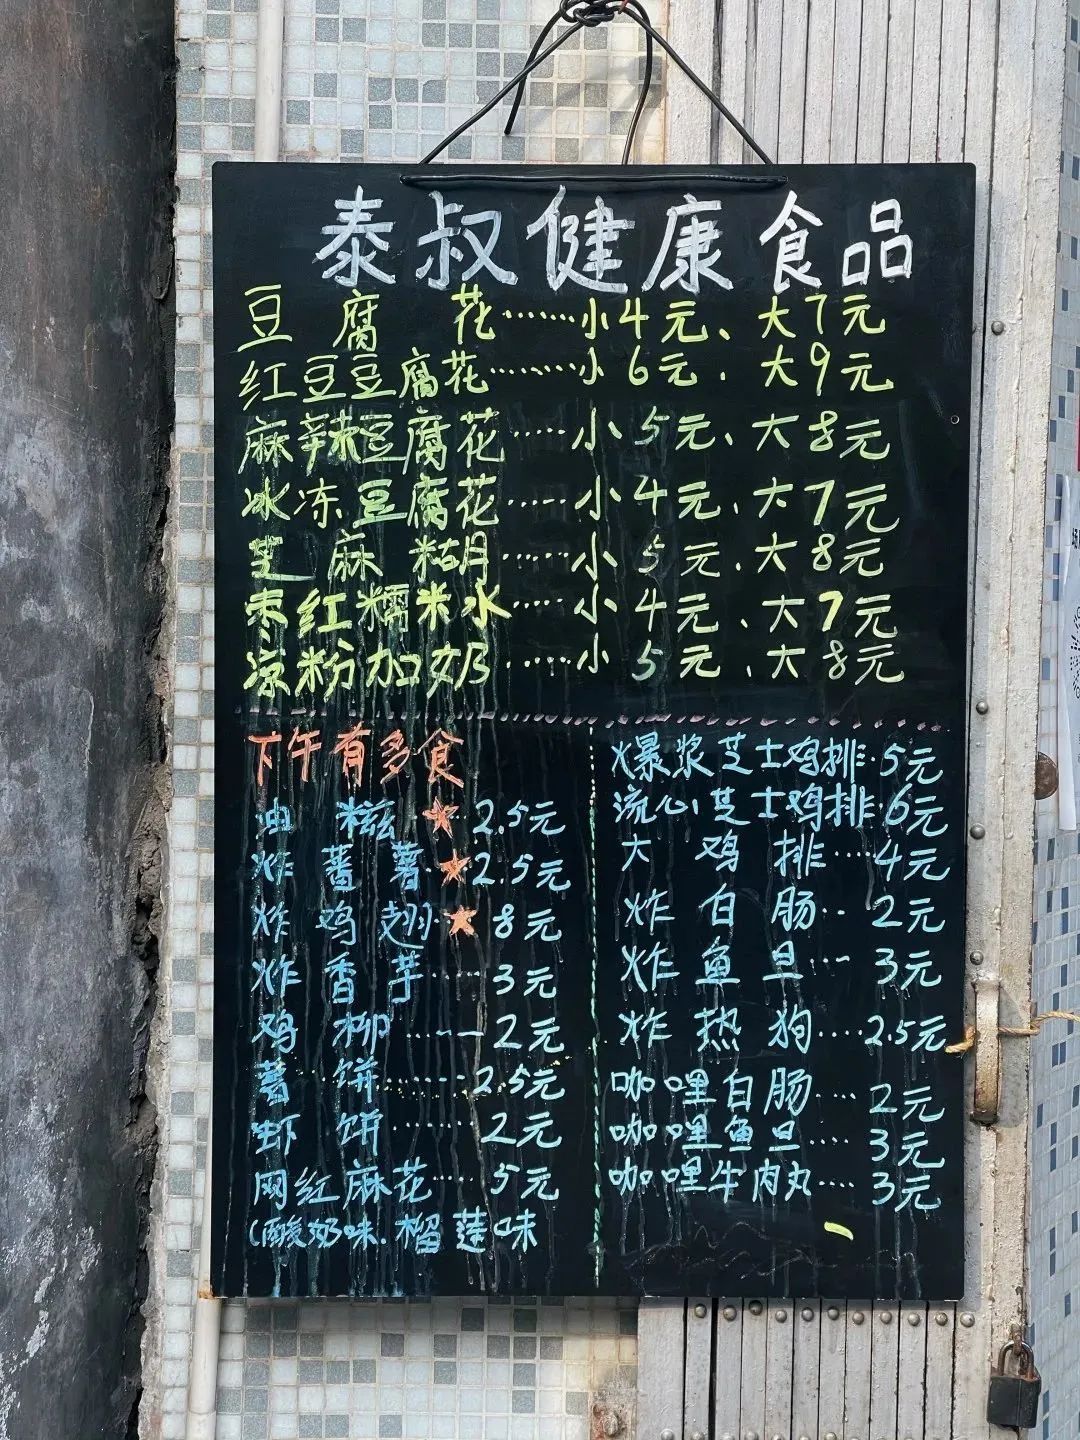 泰叔健康食品
豆腐花……小4元、大7元
红豆豆腐花……小6元.大9元
麻辣豆腐花……小5元、大8元
冰冻豆腐花……小4元、大7元
芝麻糊……小5元.大8元
枣红糯米水……小4元、大7元
凉粉加奶……小5元、大8元
下午有多食
油糍★2.5元
炸蕃薯★2.5元
炸鸡翅★8元
炸香芋……3元
鸡柳……2元
薯饼……2.5元
虾饼……2元
网红麻花……5元
(酸奶味.榴莲味
爆浆芝士鸡排..5元
流心芝士鸡排.6元
大鸡排……4元
炸白肠...2元
炸鱼旦……3元
炸热狗……2.5元
咖哩白肠……2元
咖哩鱼旦……3元
咖哩牛肉丸……3元